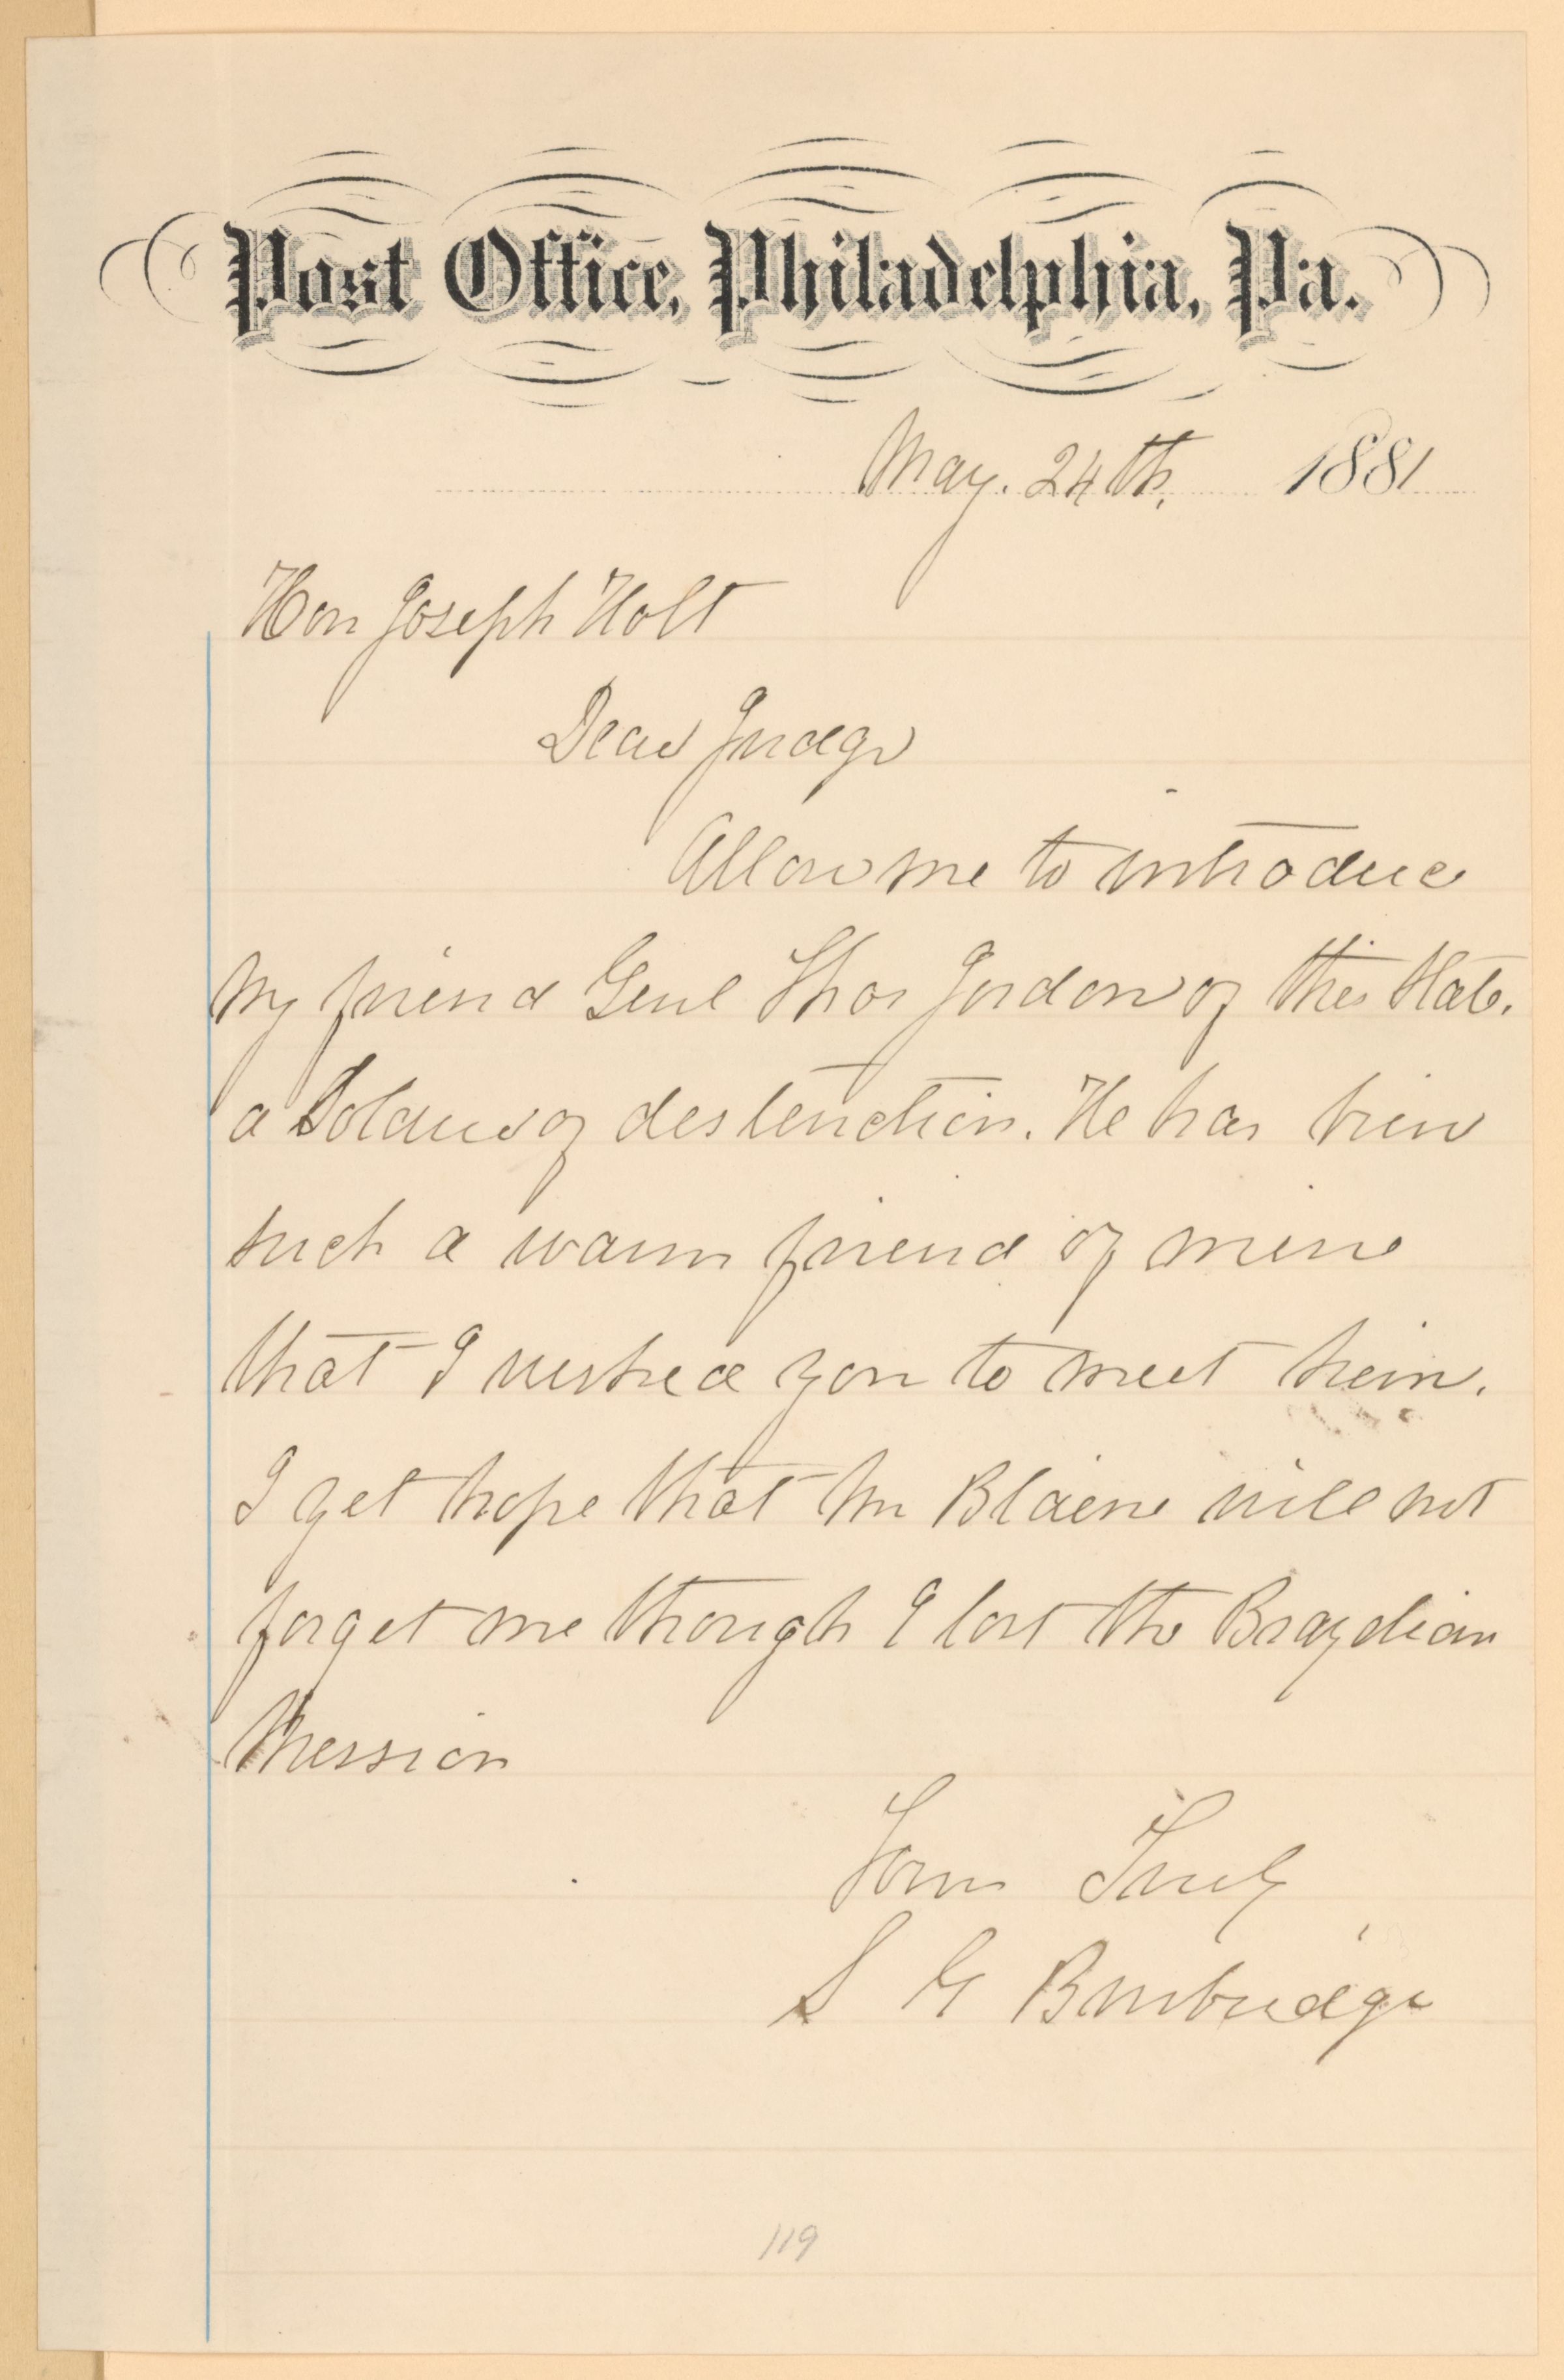 Post Office, Philadelphia, Pa.
May. 24th, 1881
Hon Joseph Holt
Dear Judge
Allow me to introduce
my friend Genl Thos Jordan of this State.
a Soldier of destinction. He has been
such a warm friend of mine
that I wished you to meet him.
I yet hope that Mr Blaine will not
forget me though I lost the Brazilian
Mission
Yours Truly
S G Burbridge
119